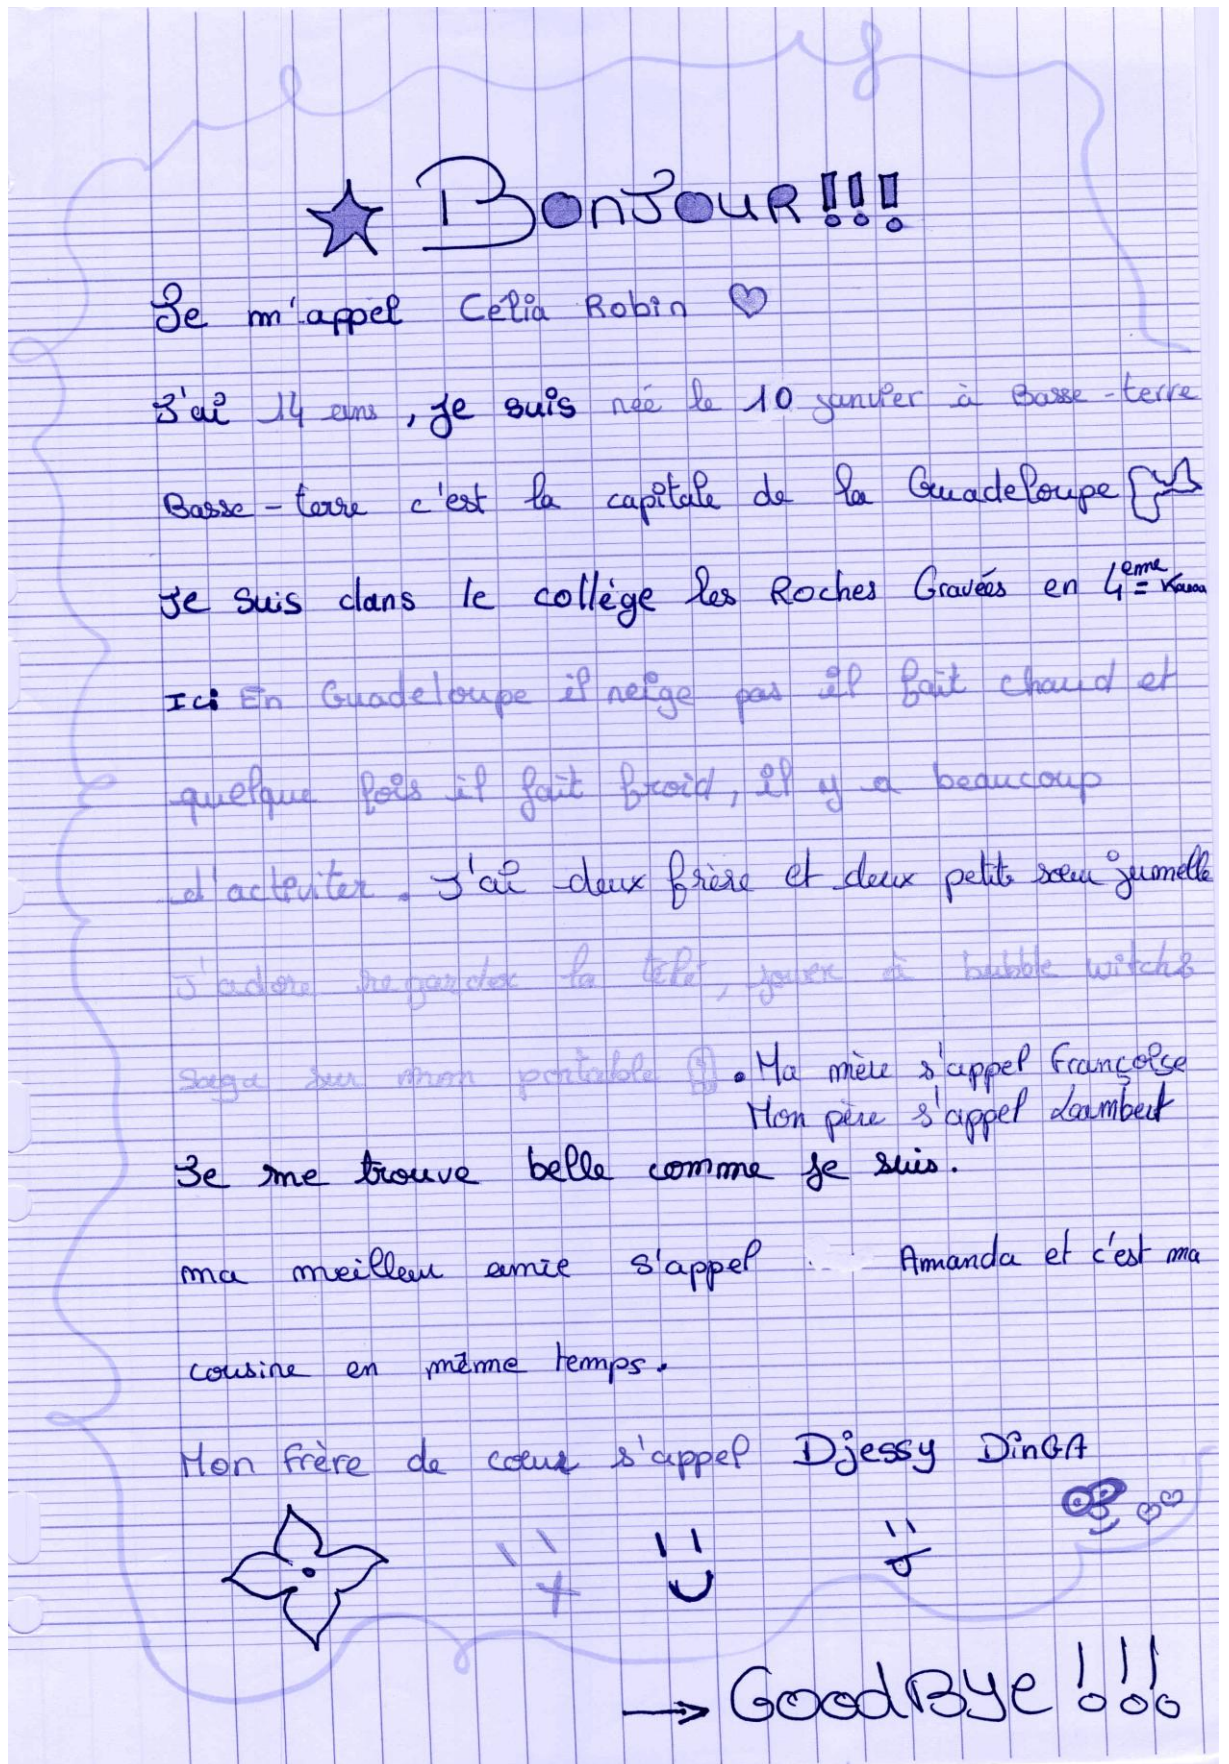 BonJouR!!!
Je m'appel Célia Robin
J'ai 14 ans, je suis née le 10 janvier à Basse-terre
Basse-terre c'est la capitale de la Guadeloupe
Je suis dans le collège les Roches Gravées en 4ème
Ici En Guadeloupe il neige pas il fait chaud et
quelque fois il fait froid, il y a beaucoup
d'activiter. J'ai deux frère et deux petit sœu jumelle
J'adore regarder la télé, jouer à bubble witch2
saga sur mon portable. Ma mère s'appel Françoise
Mon père s'appel Lambert
Je me trouve belle comme je suis.
ma meilleu amie s'appel Amanda et c'est ma
cousine en même temps.
Mon frère de cœur s'appel Djessy DinGA
GoodBye !!!